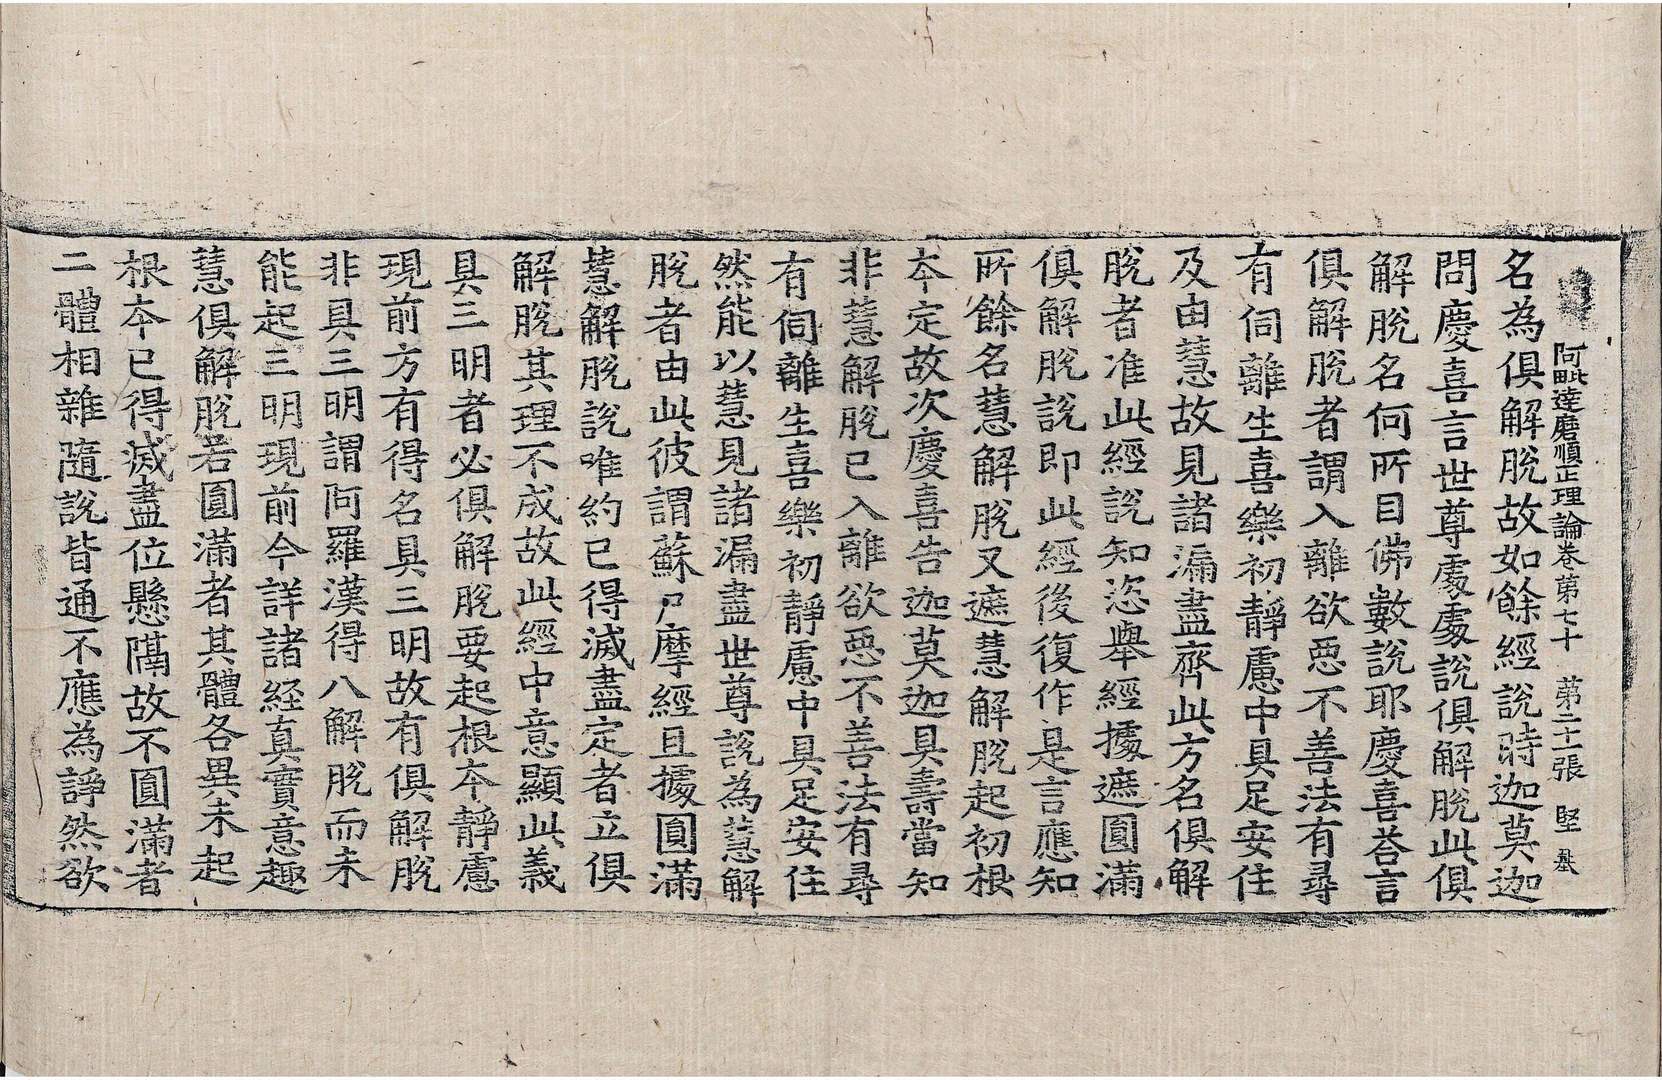 阿毗達磨順正理論卷第七十　第二十一張　堅
名為俱解脫故如餘經說時迦莫迦
問慶喜言世尊處處說俱解脫此俱
解脫名何所目佛數說耶慶喜荅言
俱解脫者謂入離欲惡不善法有尋
有伺離生喜樂初靜慮中具足安住
及由慧故見諸漏盡齊此方名俱解
脫者准此經說知恣舉經據遮圓滿
俱解脫說即此經後復作是言應知
所餘名慧解脫又遮慧解脫起初根
本定故次慶喜告迦莫迦具壽當知
非慧解脫已入離欲惡不善法有尋
有伺離生喜樂初靜慮中具足安住
然能以慧見諸漏盡世尊說為慧解
脫者由此彼謂蘇尸摩經且據圓滿
慧解脫說唯約已得滅盡定者立俱
解脫其理不成故此經中意顯此義
具三明者必俱解脫要起根本靜慮
現前方有得名具三明故有俱解脫
非具三明謂阿羅漢得八解脫而未
能起三明現前今詳諸經真實意趣
慧俱解脫若圓滿者其體各異未起
根本已得滅盡位懸隔故不圓滿者
二體相雜隨說皆通不應為諍然欲